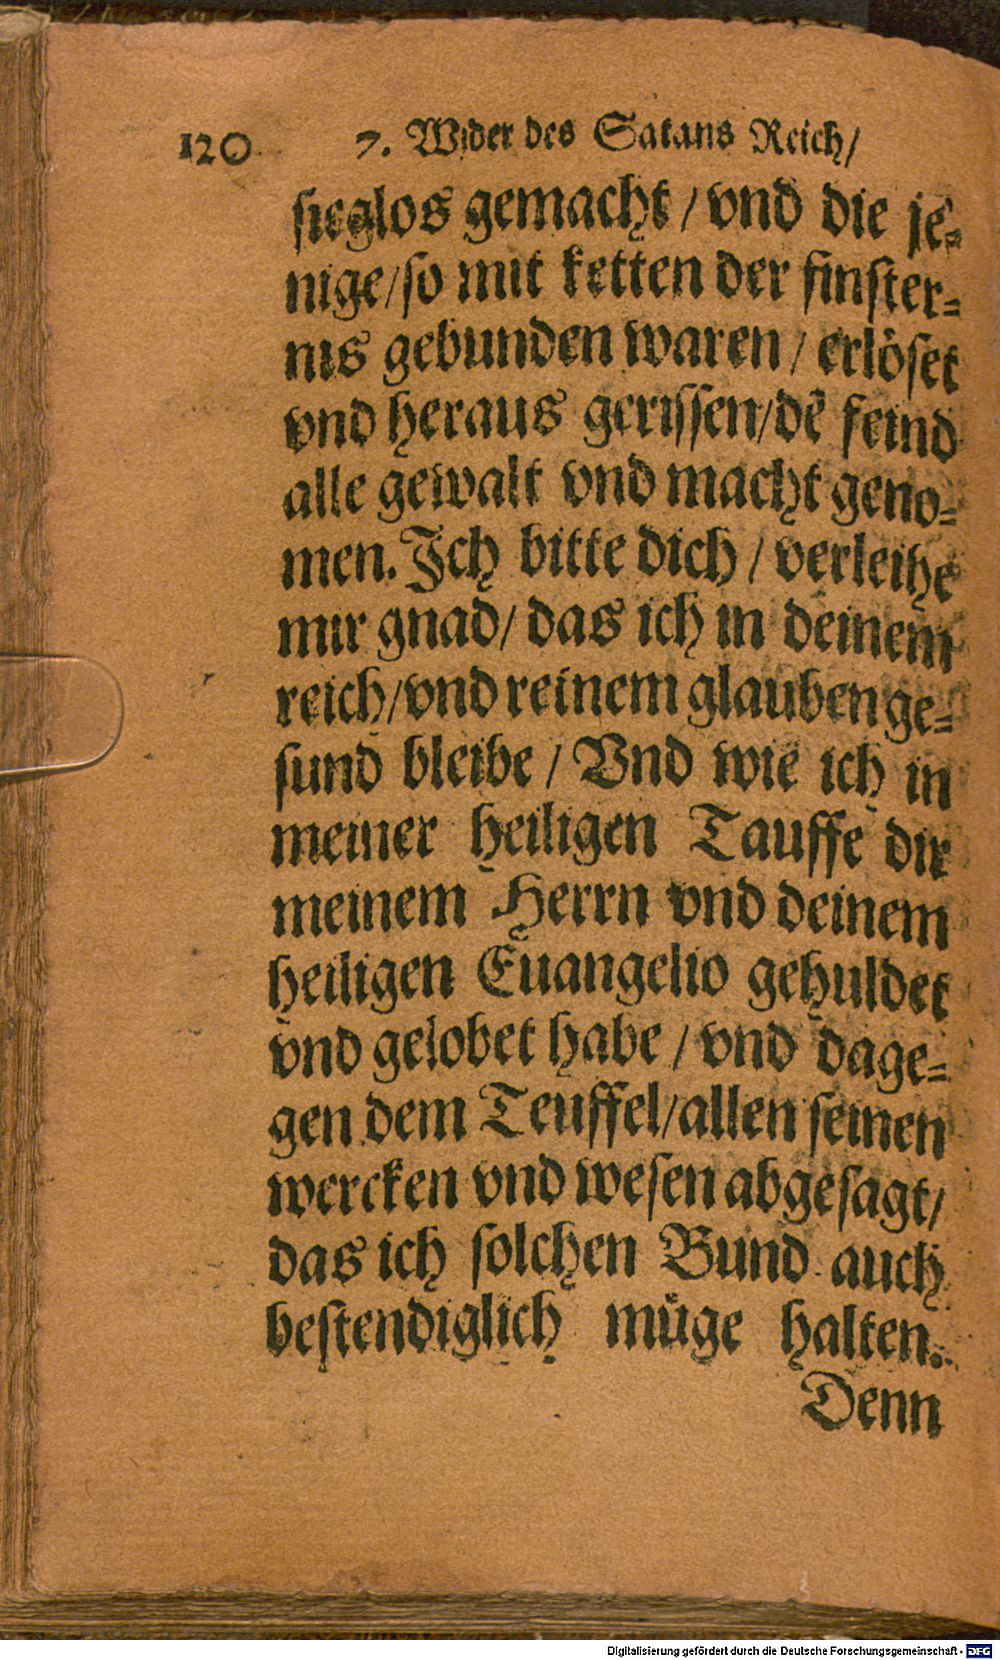 120 7. Wider des Satans Reich/
sieglos gemacht / vnd die je-
nige/so mit ketten der finster-
nis gebunden waren / erlöset
vnd heraus gerissen/dẽ feind
alle gewalt vnd macht geno-
men. Ich bitte dich / verleihe
mir gnad/ das ich in deinem
reich/vnd reinem glauben ge-
sund bleibe / Vnd wie ich in
meiner heiligen Tauffe dir
meinem Herrn vnd deinem
heiligen Euangelio gehuldet
vnd gelobet habe / vnd dage-
gen dem Teuffel/allen seinen
wercken vnd wesen abgesagt/
das ich solchen Bund auch
bestendiglich müge halten.
Denn
Digitalisierung gefördert durch die Deutsche Forschungsgemeinschaft - DFG